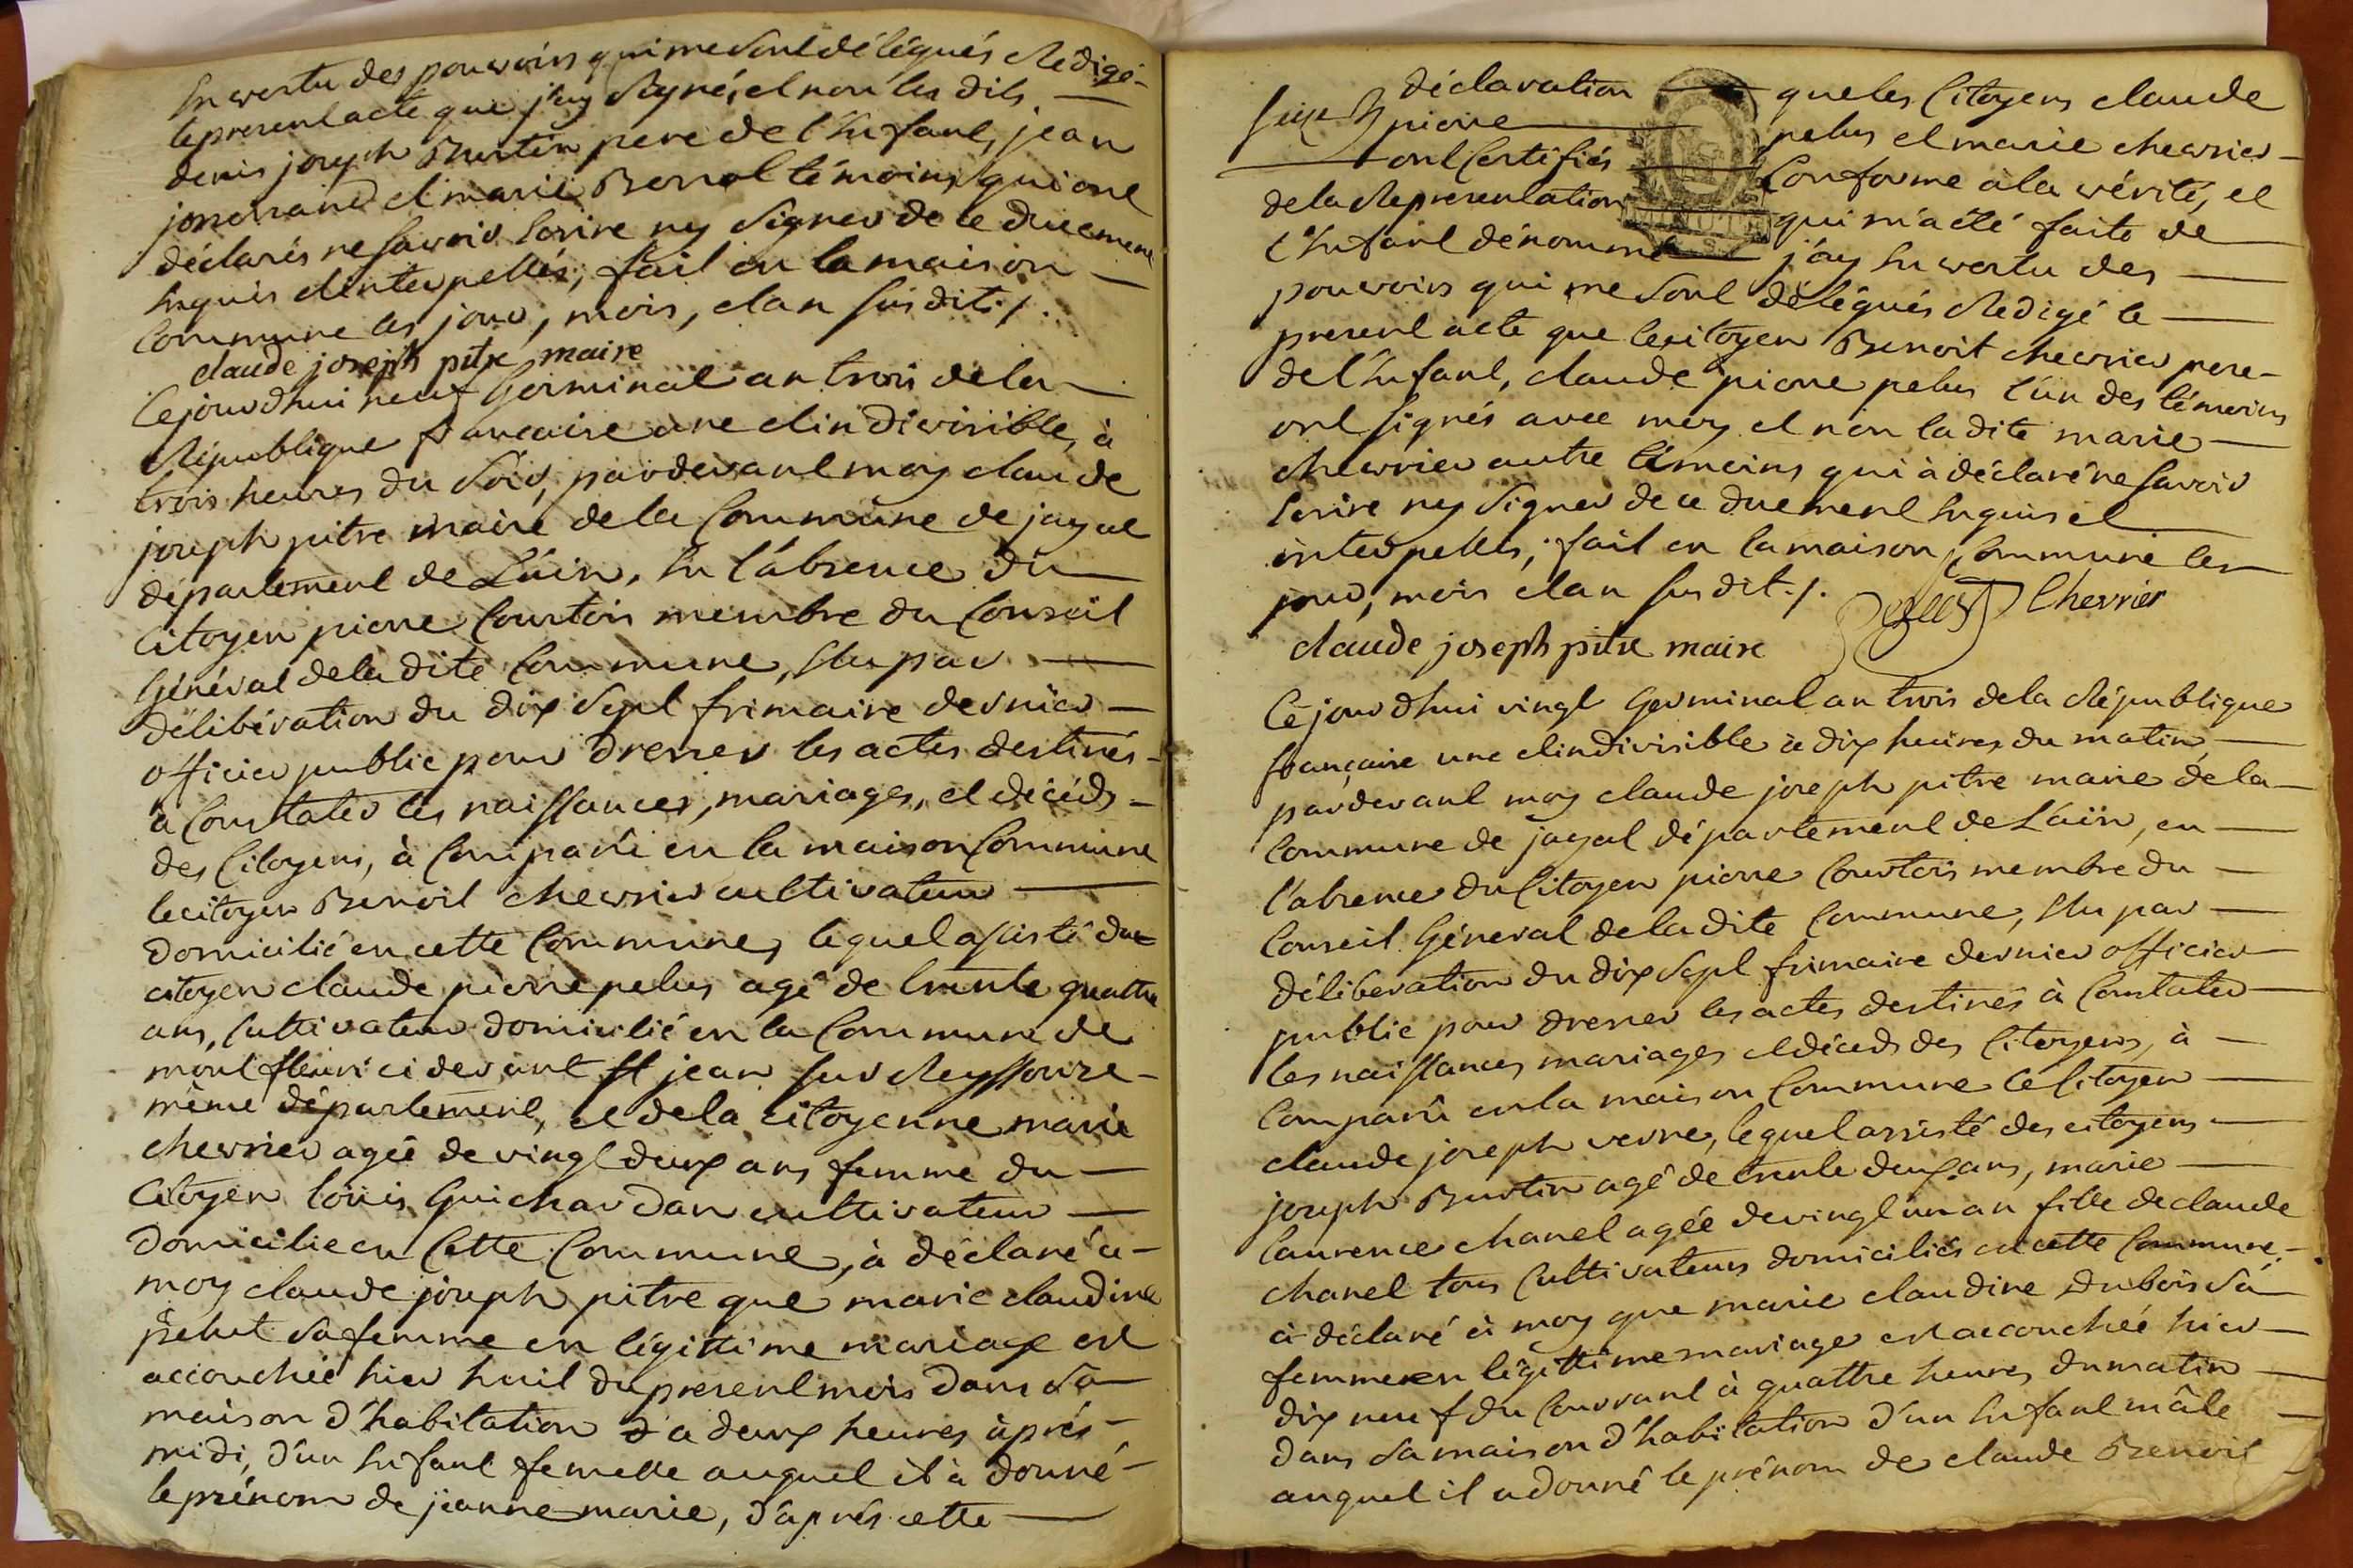 En vertu des pouvoirs qui me sont délégués Rédigé
le present acte que j'ay Signé, et non les dits
denis joseph Burtin pere de l'Enfant, jean
jonerrand et marie Borrol témoins qui ont
déclarés ne savoir Ecrire ny Signer de ce duement
Enquis et interpellés, fait en la maison
Commune les jour, mois, et an sus dit ./.
claude joseph pitre maire
Cejourdhui neuf Germinal an trois de la
République francaise une et indivisible, à
trois heures du Soir, pardevant moy claude
joseph pitre maire de la Commune de jayat
département de L'ain, En l'absence du
Citoyen pierre Courtois membre du Conseil
Général de la dite Commune, Elu par
délibération du dix Sept frimaire dernier
officier public pour dresser les actes destinés
a Constater les naissances, mariages, et décéds
des Citoyens, à Comparû en la maison Commune
le citoyen Benoit chevrier cultivateur
domicilié en cette Commune, lequel assisté du
citoyen claude pierre pelus agé de trente quattre
ans, Cultivateur domicilié en la Commune de
mont fleuri ci devant st jean sur Reyssouze
même département, et de la citoyenne marie
chevrier agée de vingt deux ans femme du
Citoyen loüis Guichardan cultivateur
domicilie en Cette Commune, à déclaré a
moy claude joseph pitre que marie claudine
pelut sa femme en légittime mariage est
accouchée hier huit du present mois dans sa
maison d'habitation à deux heures àprés
midi, d'un Enfant femelle auquel il à donné
le prénom de jeanne marie, d'aprés cette
déclaration que les Citoyens claude
pierre pelus et marie chevrier
ont Certifiés Conforme à la vérité, et
de la Representation qui m'a été faite de
l'Enfant dénommé j'ay En vertu des
pouvoirs qui me sont délégués Redigé le
present acte que le citoyen Benoit chevrier pere
de l'Enfant, claude pierre pelus l'ùn des témoins
ont signés avec moy et non la dite marie
chevrier autre témoins qui à déclaré ne savoir
Ecrire ny Signer de ce duement Enquis et
interpellés, fait en la maison Commune les
jour, mois et an sus dit ./. Chevrier
claude joseph pitre maire
Cejourdhui vingt Germinal an trois de la République
française une et indivisible à dix heures du matin
pardevant moy claude joseph pitre maire de la
Commune de jayat département de L'aïn, en
l'absence du Citoyen pierre Courtois membre du
Conseil Géneral de la dite Commune, Elu par
déliberation du dix Sept frimaire dernier officier
public pour dresser les actes destinés à Constater
les naissances mariages et décéds des Citoyens, à
Comparû en la maison Commune le Citoyen
claude joseph verne, lequel assisté des citoyens
joseph Burtin agé de trente deux ans, marie
Laurence chanel agée de vingt un an fille de claude
chanel tous Cultivateurs domiciliés en cette Commune,
à déclaré à moy que marie claudine Dubois sa
femme en légittime mariage est accouchée hier
dix neuf du Courrant à quattre heures du matin
dans sa maison d'habitation d'un Enfant mâle
auquel il a donné le prénom de claude Benoit